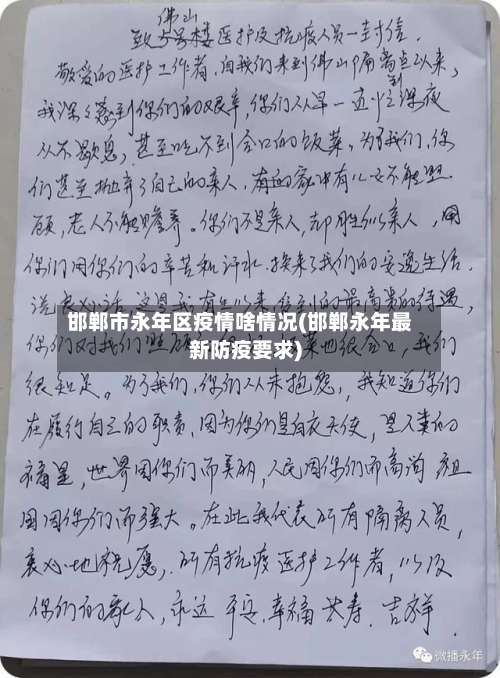 佛山
致5号楼医护及抗疫人员一封信.
敬爱的医护工作者,自我们来到佛山隔离点以来,
我深深感到你们的艰辛,你们从早一直忙到深夜
从不歇息,甚至吃不到合口的饭菜。为了我们,你
们甚至抛弃了自己的亲人,有的家中有儿女不能照
顾,老人不能赡养。你们不是亲人,却胜似亲人,用
你们用你们的辛苦和汗水,换来了我们的安逸生活.
说良心话,这是我有生以来,受到的最高贵的待遇,
你们对我们照
菜也很合口,我们
邯郸市永年区疫情啥情况(邯郸永年最
新防疫要求)
很知足。为了我们,你们从未抱怨,我知道你们
在履行自己的职责,因为你们是白衣天使,是人类的
福星,世界因你们而美丽,人民因你们而高尚 祖
国因你们而强大。在此我代表所有隔离人员,
衷心地祝愿,所有抗疫医护工作者,以及
你们的家人,永远 平安.幸福 长寿.吉祥.
微播永年